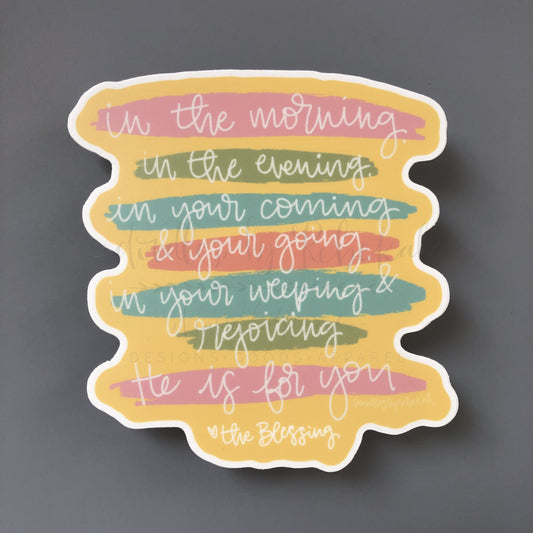 in the morning
in the evening
in your coming
& your going
in your weeping &
rejoicing
DESIGNS • GOODS • APPAREL
He is for you
the Blessing